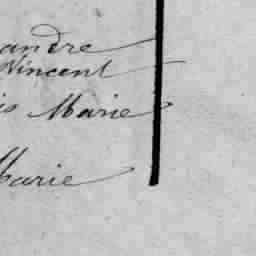 andre
Vincent
is Marie
Marie